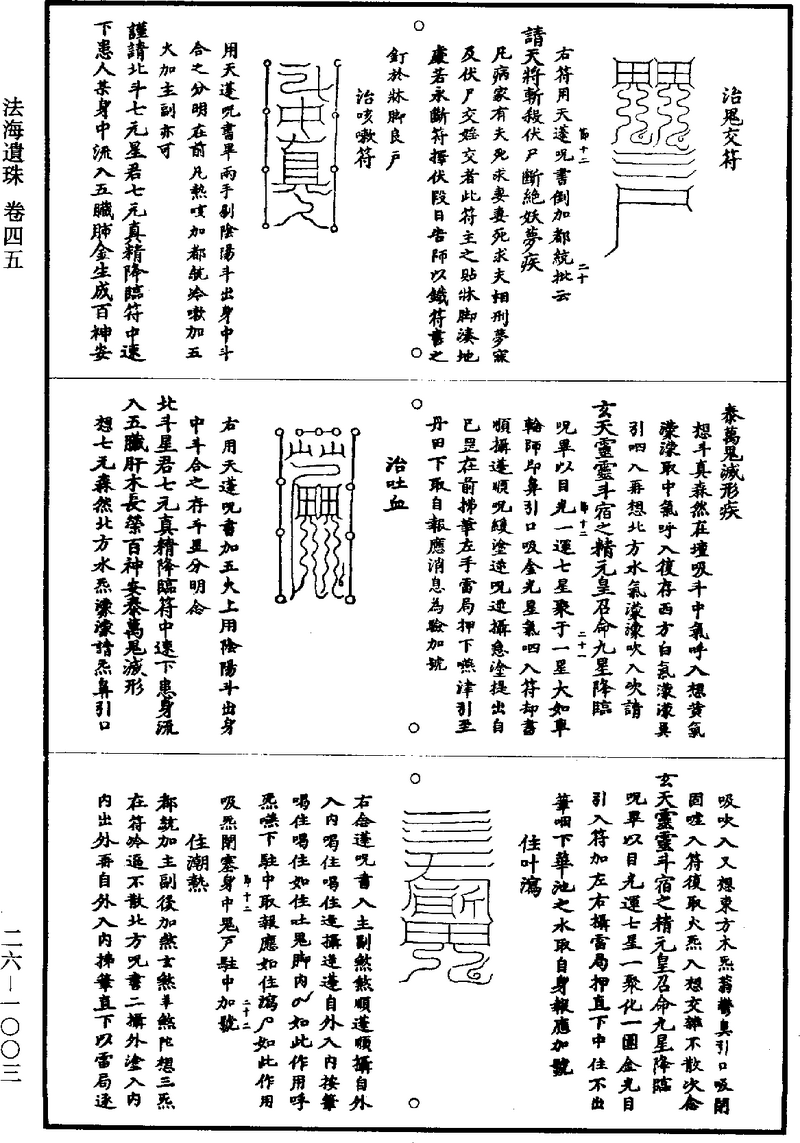 法海遺珠 卷四五
二六—一〇〇三
治鬼交符
右符用天蓬呪書倒加都統批云
請天將斬殺伏尸斷絕妖夢疾
凡病家有夫死求妻妻死求夫相刑夢寐
及伏尸交婬交者此符主之貼牀脚湊地
處若永斷符擇伏段日告師以鐵符書之
釘於牀脚良户
治咳嗽符
用天蓬呪書畢兩手剔陰陽斗出身中斗
合之分明在前凡熱咳加都統冷嗽加五
火加主副亦可
謹請北斗七元星君七元真精降臨符中速
下患人某身中流入五臟肺金生成百神安
節十二
二十
泰萬鬼滅形疾
想斗真森然在壇吸斗中氣呼入想黄氣
濛濛取中氣呼入復存西方白氣濛濛鼻
引呬入再想北方水氣濛濛吹入吹請
玄天靈靈斗宿之精元皇召命九星降臨
呪畢以目光一運七星聚于一星大如車
輪師却鼻引口吸金光星氣呬入符却書
順攝蓬順呪緩塗逆呪逆攝急塗提出自
己罡在前拂筆左手雷局押下嚥津引至
丹田下取自報應消息為驗加號
治吐血
右用天蓬呪書加五火上用陰陽斗出身
中斗合之存斗星分明念
北斗星君七元真精降臨符中速下患身流
入五臟肝木長榮百神安泰萬鬼滅形
想七元森然北方水炁濛濛請炁鼻引口
節十二
二十一
吸吹入又想東方木炁蓊鬱鼻引口吸閉
固噓入符復取火炁入想交辦不散次念
玄天靈靈斗宿之精元皇召命九星降臨
呪畢以目光運七星一聚化一團金光目
引入符加左右攝雷局押直下中住不出
筆咽下華池之水取自身報應加號
住吐瀉
右念蓬呪書入主副煞煞順蓬順攝自外
入内喝住喝住逆攝逆蓬自外入内按筆
喝住喝住如住吐鬼脚内如此作用呼
炁嚥下駐中取報應如住瀉尸如此作用
吸炁閉塞身中鬼户駐中加號
住潮熱
都統加主副後加煞玄煞羊煞陀想三炁
在符冷逼不散北方呪書二攝外塗入内
内出外再自外入内拂筆直下以雷局逐
節十二
二十二